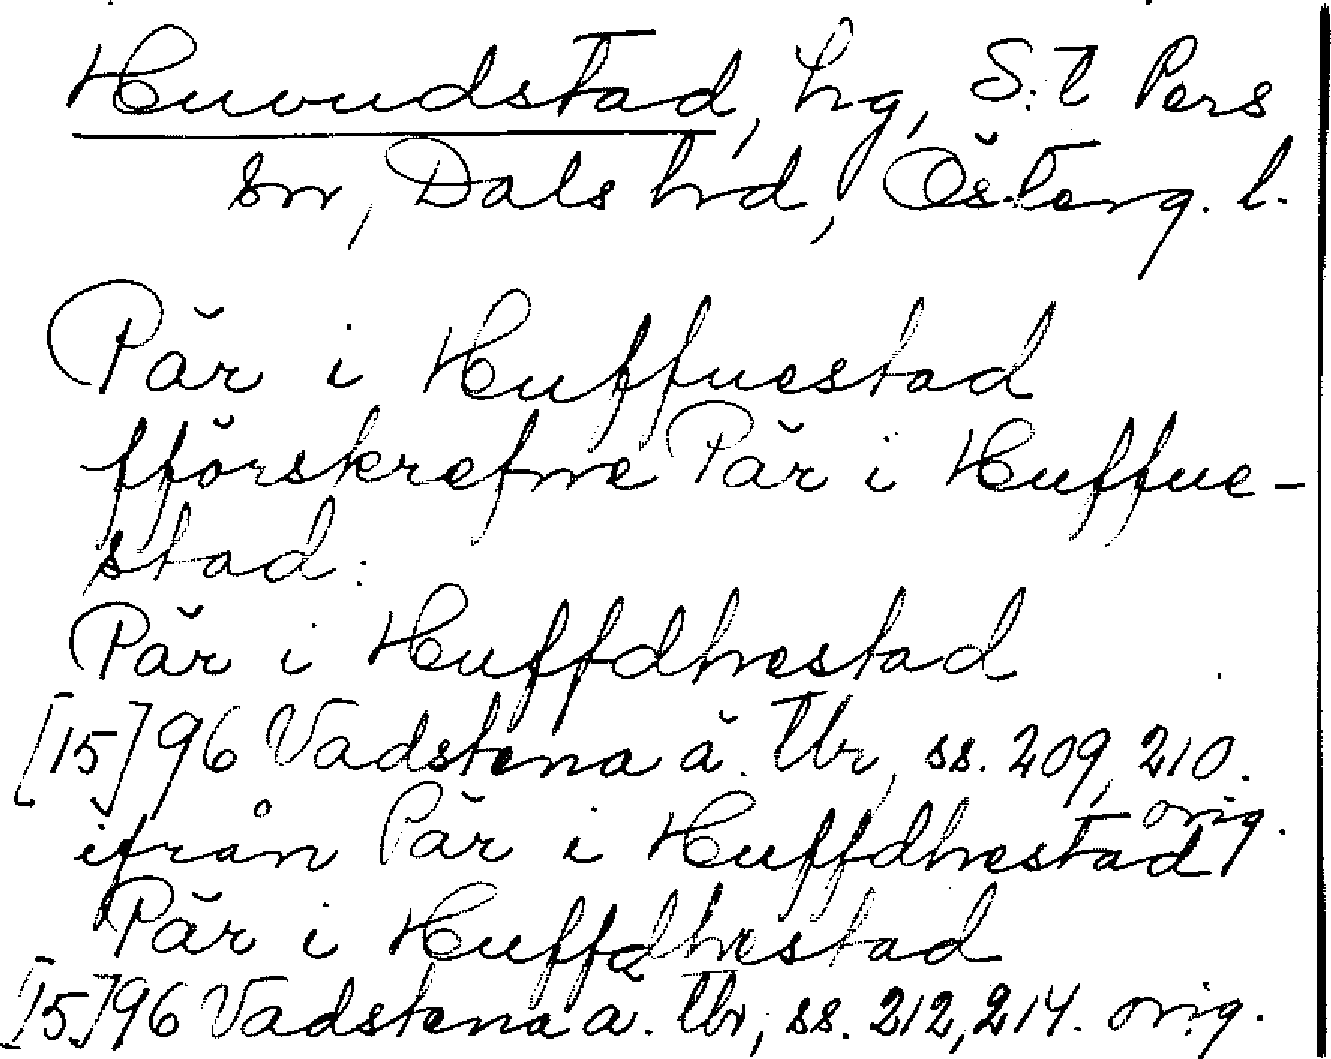 Huvudstad, hg, S:t Pers
sn, Dals hrd, Österg. l.
Pär i Huffuestad
fförskrefne Pär i Huffue-
stad:
Pär i Huffdhestad
[15]96 Vadstena ä. Tbr, ss. 209, 210.
orig.
ifrån Pär i Huffdhestad
Pär i Huffdhestad
[15]96 Vadstena ä. Tbr, ss. 212, 214. orig.